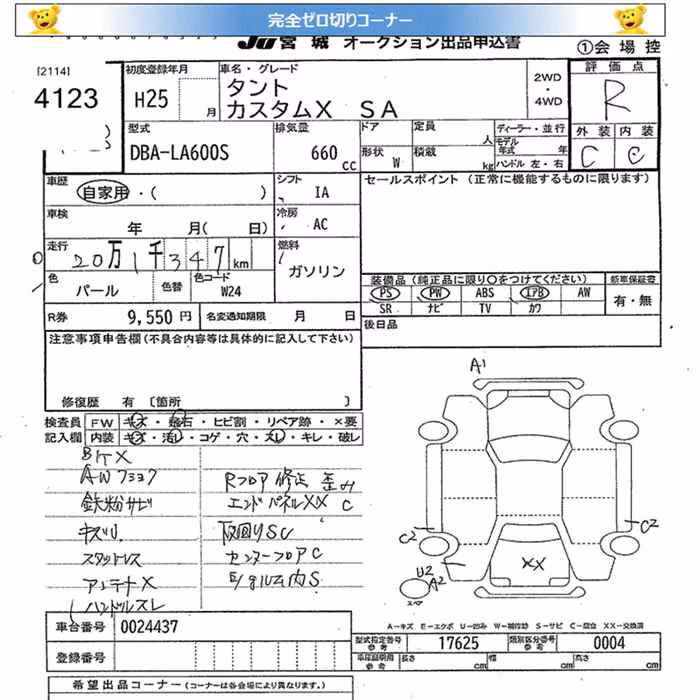 完全ゼロ切りコーナー
JU宮城 オークション出品申込書 ①会場控
[2114]
4123
初度登録年月 H25 月
車名・グレード
タント
カスタムX SA
2WD・4WD
評価点
R
外装 内装
C e
型式 DBA-LA600S
排気量 660 cc
ドア 定員 人 ディーラー・並行
形状 W 積載 kg モデル年式 年 ハンドル 左・右
車歴 自家用・( )
シフト IA
セールスポイント (正常に機能するものに限ります)
車検 年 月( 日)
冷房 AC
走行 20万1千347km
燃料 ガソリン
色 パール 色替 色コード W24
装備品 (純正品に限り〇をつけてください) 新車保証書
PS PW ABS エアB AW 有・無
SR ナビ TV カワ
R券 9,550円 名変通知期限 月 日
後日品
注意事項申告欄(不具合内容等は具体的に記入して下さい)
修復歴 有 〔箇所 〕
検査員 FW キズ・飛石・ヒビ割・リペア跡・×要
記入欄 内装 キズ・汚レ・コゲ・穴・スレ・キレ・破レ
AWフショク
鉄粉サビ
キズU
スタットレス
アンテナX
ハンドルスレ
Rフロア修正歪み
エンドパネルXX C
下回りSC
センターフロアC
A1
C2
C2
XX
U2
A2
スペア
A-キズ E-エクボ U-凹み W-補修跡 S-サビ C-腐食 XX-交換済
車台番号 0024437
登録番号
型式指定番号 参考 17625 類別区分番号 参考 0004
車庫証明用 参考 長さ cm 幅 cm 高さ cm
希望出品コーナー (コーナーは各会場により異なります。)